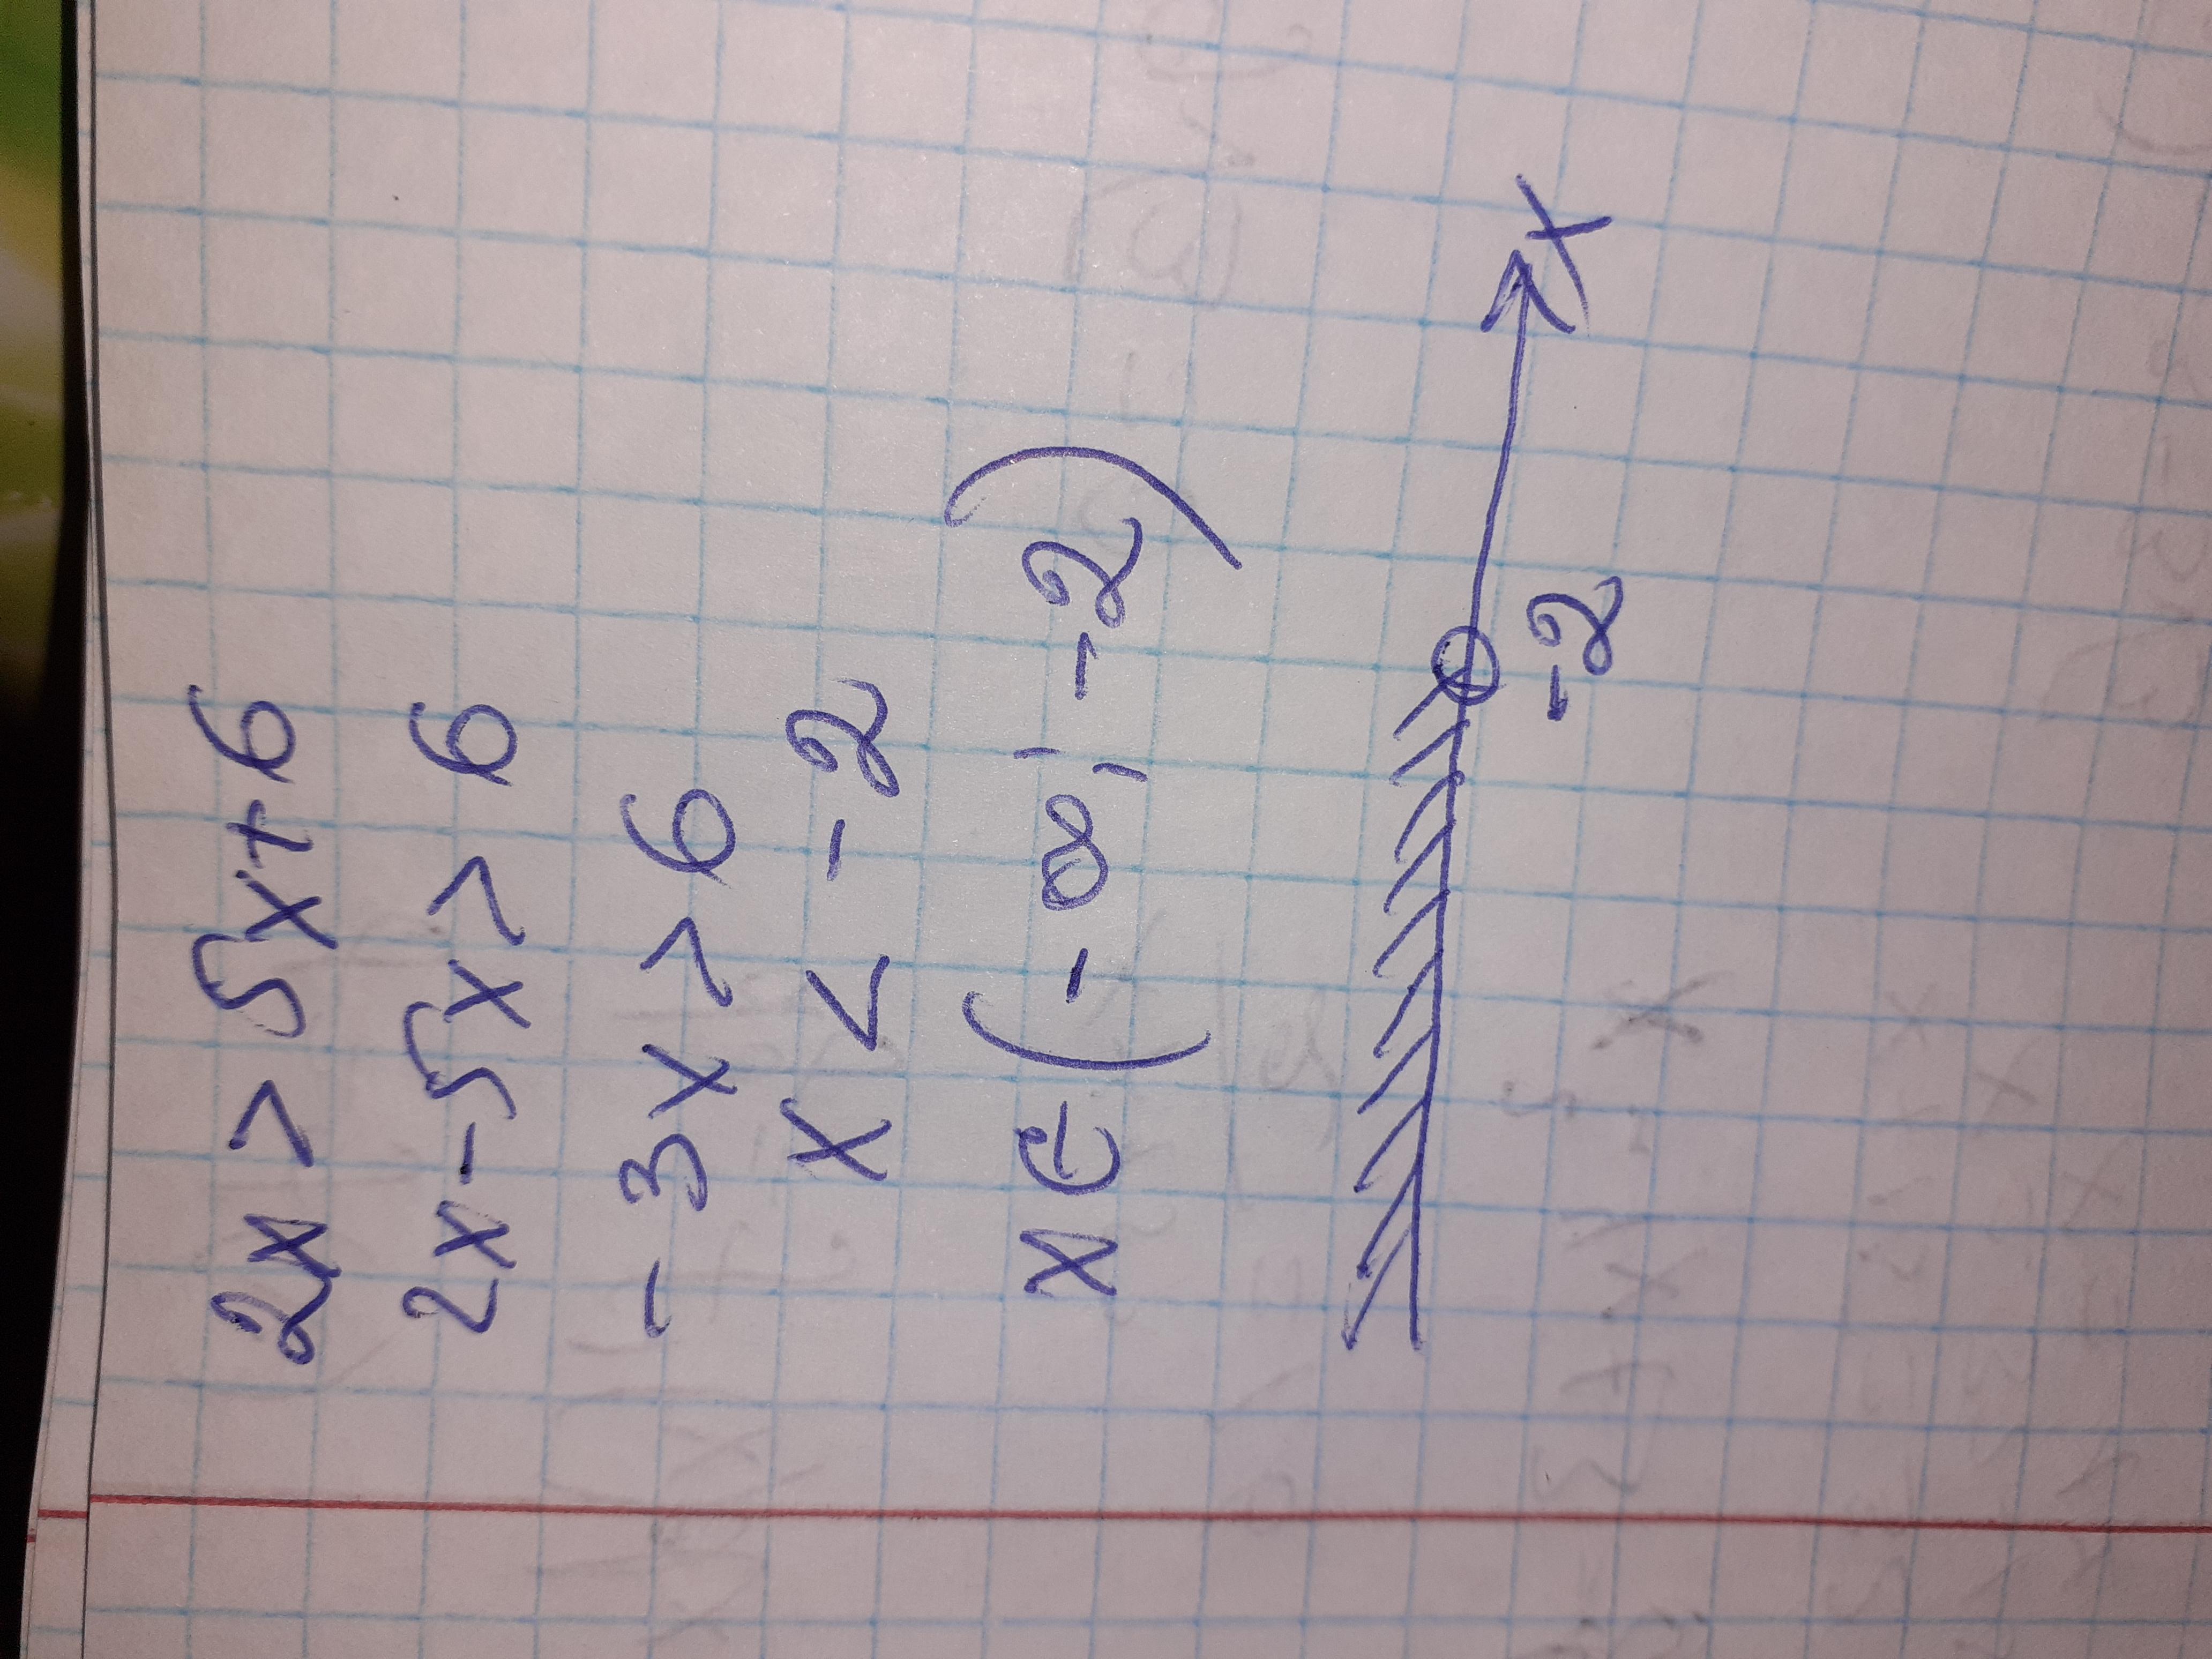 2x > 5x+6
2x-5x > 6
-3x > 6
x < -2
x ∈ (-∞; -2)
-2
x